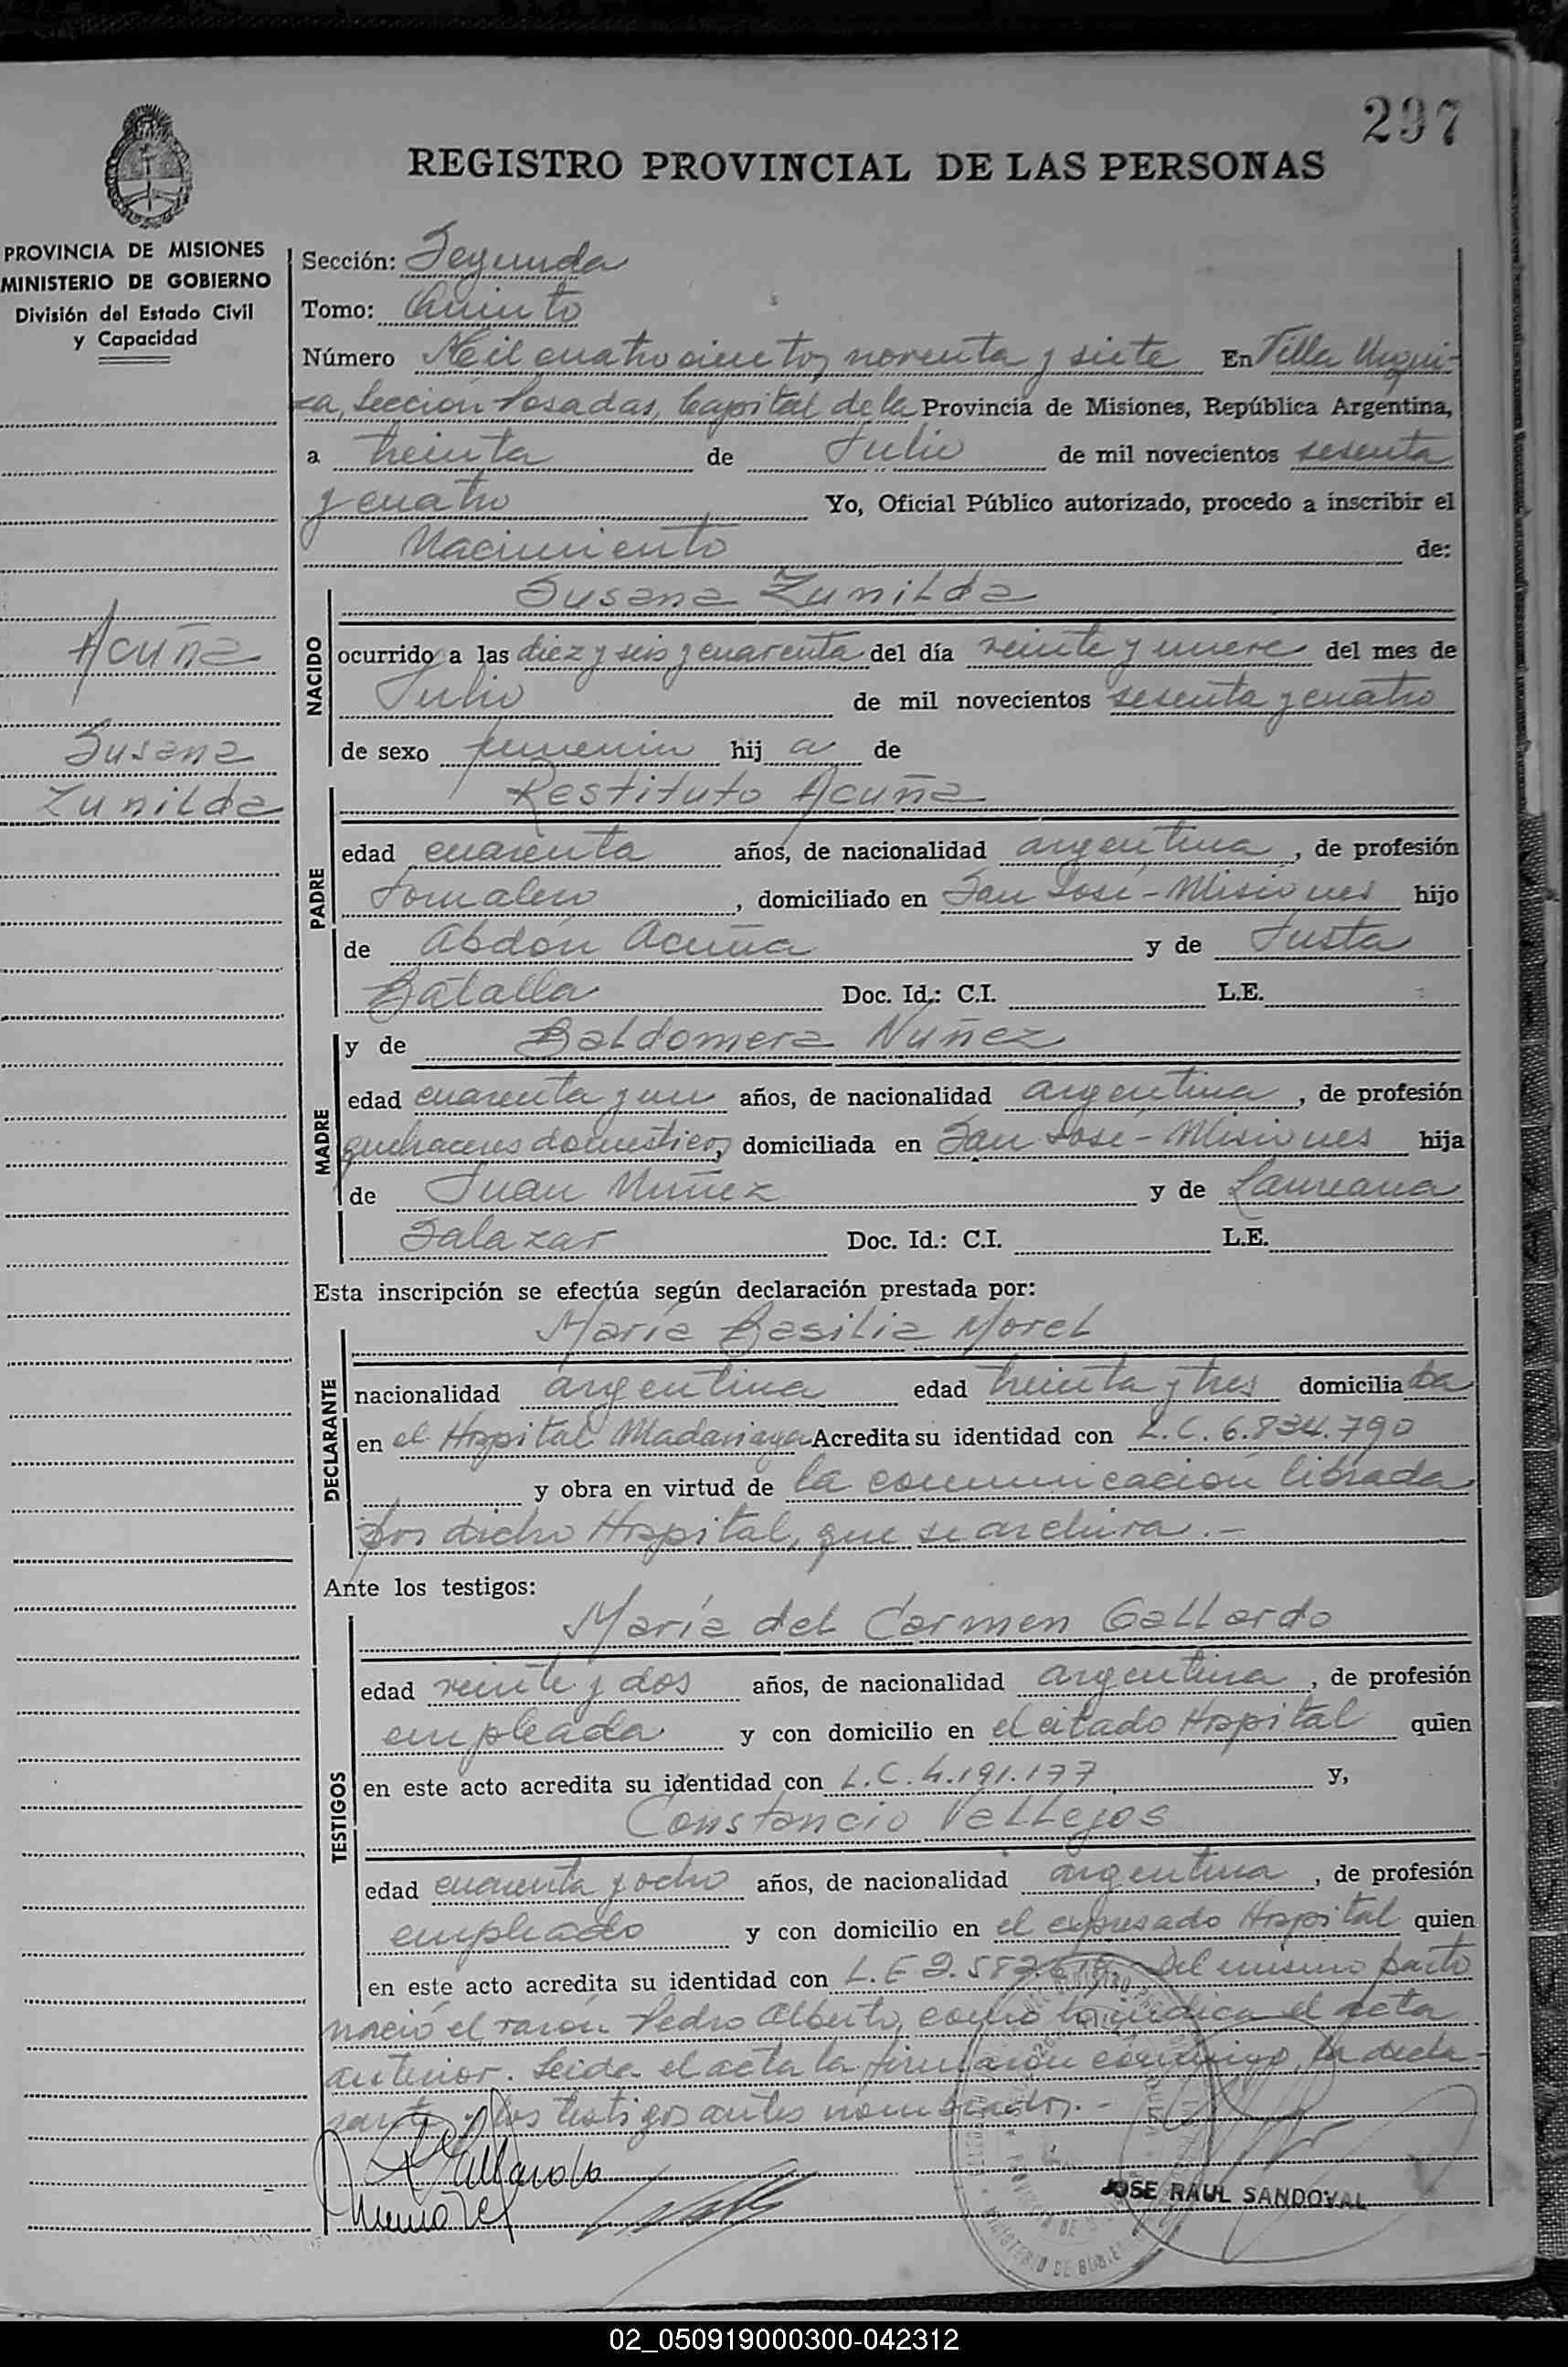 297
REGISTRO PROVINCIAL DE LAS PERSONAS
PROVINCIA DE MISIONES
MINISTERIO DE GOBIERNO
División del Estado Civil
y Capacidad
Acuña
Susana
Zunilda
Sección: Segunda
Tomo: Quinto
Número Mil cuatrocientos noventa y siete En Villa Urqui-
za, Sección Posadas, Capital de la Provincia de Misiones, República Argentina,
a treinta de Julio de mil novecientos sesenta
y cuatro Yo, Oficial Público autorizado, procedo a inscribir el
Nacimiento de:
NACIDO
Susana Zunilda
ocurrido a las diez y seis y cuarenta del día veinte y nueve del mes de
Julio de mil novecientos sesenta y cuatro
de sexo femenin hij a de
PADRE
Restituto Acuña
edad cuarenta años, de nacionalidad argentina, de profesión
Jornalero, domiciliado en San José - Misiones hijo
de Abdón Acuña y de Justa
Batalla Doc. Id.: C.I. L.E.
MADRE
y de Baldomera Nuñez
edad cuarenta y un años, de nacionalidad argentina, de profesión
quehaceres domésticos, domiciliada en San José - Misiones hija
de Juan Nuñez y de Laureana
Salazar Doc. Id.: C.I. L.E.
Esta inscripción se efectúa según declaración prestada por:
DECLARANTE
María Basilia Morel
nacionalidad argentina edad treinta y tres domicilia da
en el Hospital Madariaga Acredita su identidad con L.C. 6.834.790
y obra en virtud de la comunicación librada
por dicho Hospital, que se archiva.-
Ante los testigos:
TESTIGOS
María del Carmen Gallardo
edad veinte y dos años, de nacionalidad argentina, de profesión
empleada y con domicilio en el citado Hospital quien
en este acto acredita su identidad con L.C. 4.191.177 y,
Constancio Vallejos
edad cuarenta y ocho años, de nacionalidad argentina, de profesión
empleado y con domicilio en el expresado Hospital quien
en este acto acredita su identidad con L.E 2.587. Del mismo parto
nació el varón Pedro Alberto, como lo indica el acta
anterior. Leída el acta la firmaron conmigo, la decla-
rante y los testigos antes nombrados.-
JOSE RAUL SANDOVAL
02_050919000300-042312